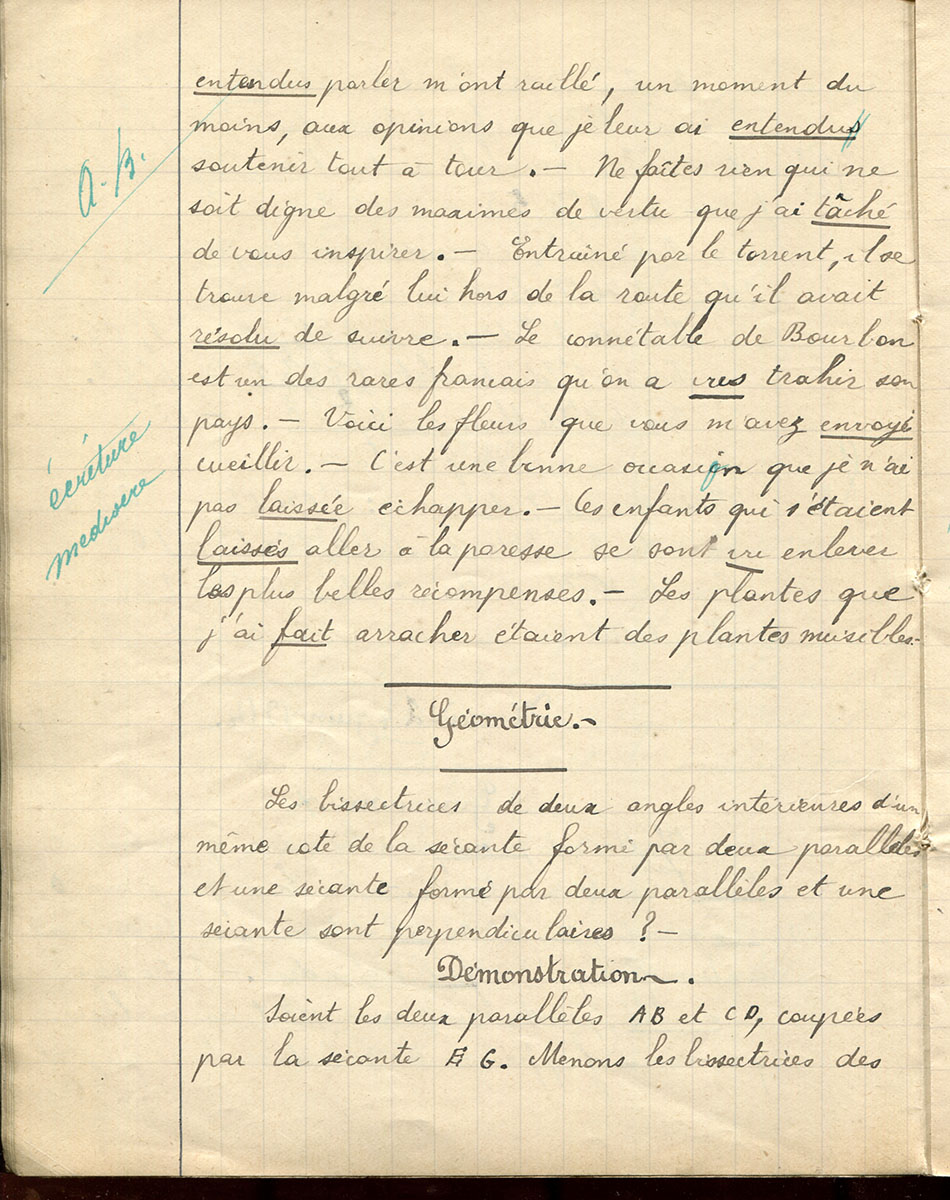 entendus parler m'ont raillé, un moment du
moins, aux opinions que je leur ai entendus
A.B.
soutenir tout à tour. — Ne faîtes rien qui ne
soit digne des maximes de vertu que j'ai tâché
de vous inspirer. — Entrainé par le torrent, il se
trouve malgré lui hors de la route qu'il avait
résolu de suivre. — Le connétable de Bourbon
est un des rares francais qu'on a vus trahir son
pays. — Voici les fleurs que vous m'avez envoyé
écriture
mediocre
cueillir. — C'est une bonne occasion que je n'ai
pas laissée echapper. — Ces enfants qui s'étaient
laissés aller à la paresse se sont vu enlever
les plus belles récompenses. — Les plantes que
j'ai fait arracher étaient des plantes nuisibles.
Géométrie. —
Les bissectrices de deux angles intérieures d'un
même coté de la sécante formé par deux parallèles
et une sécante formé par deux parallèles et une
sécante sont perpendiculaires ? —
Démonstration.
Soient les deux parallèles AB et CD, coupées
par la sécante EG. Menons les bissectrices des